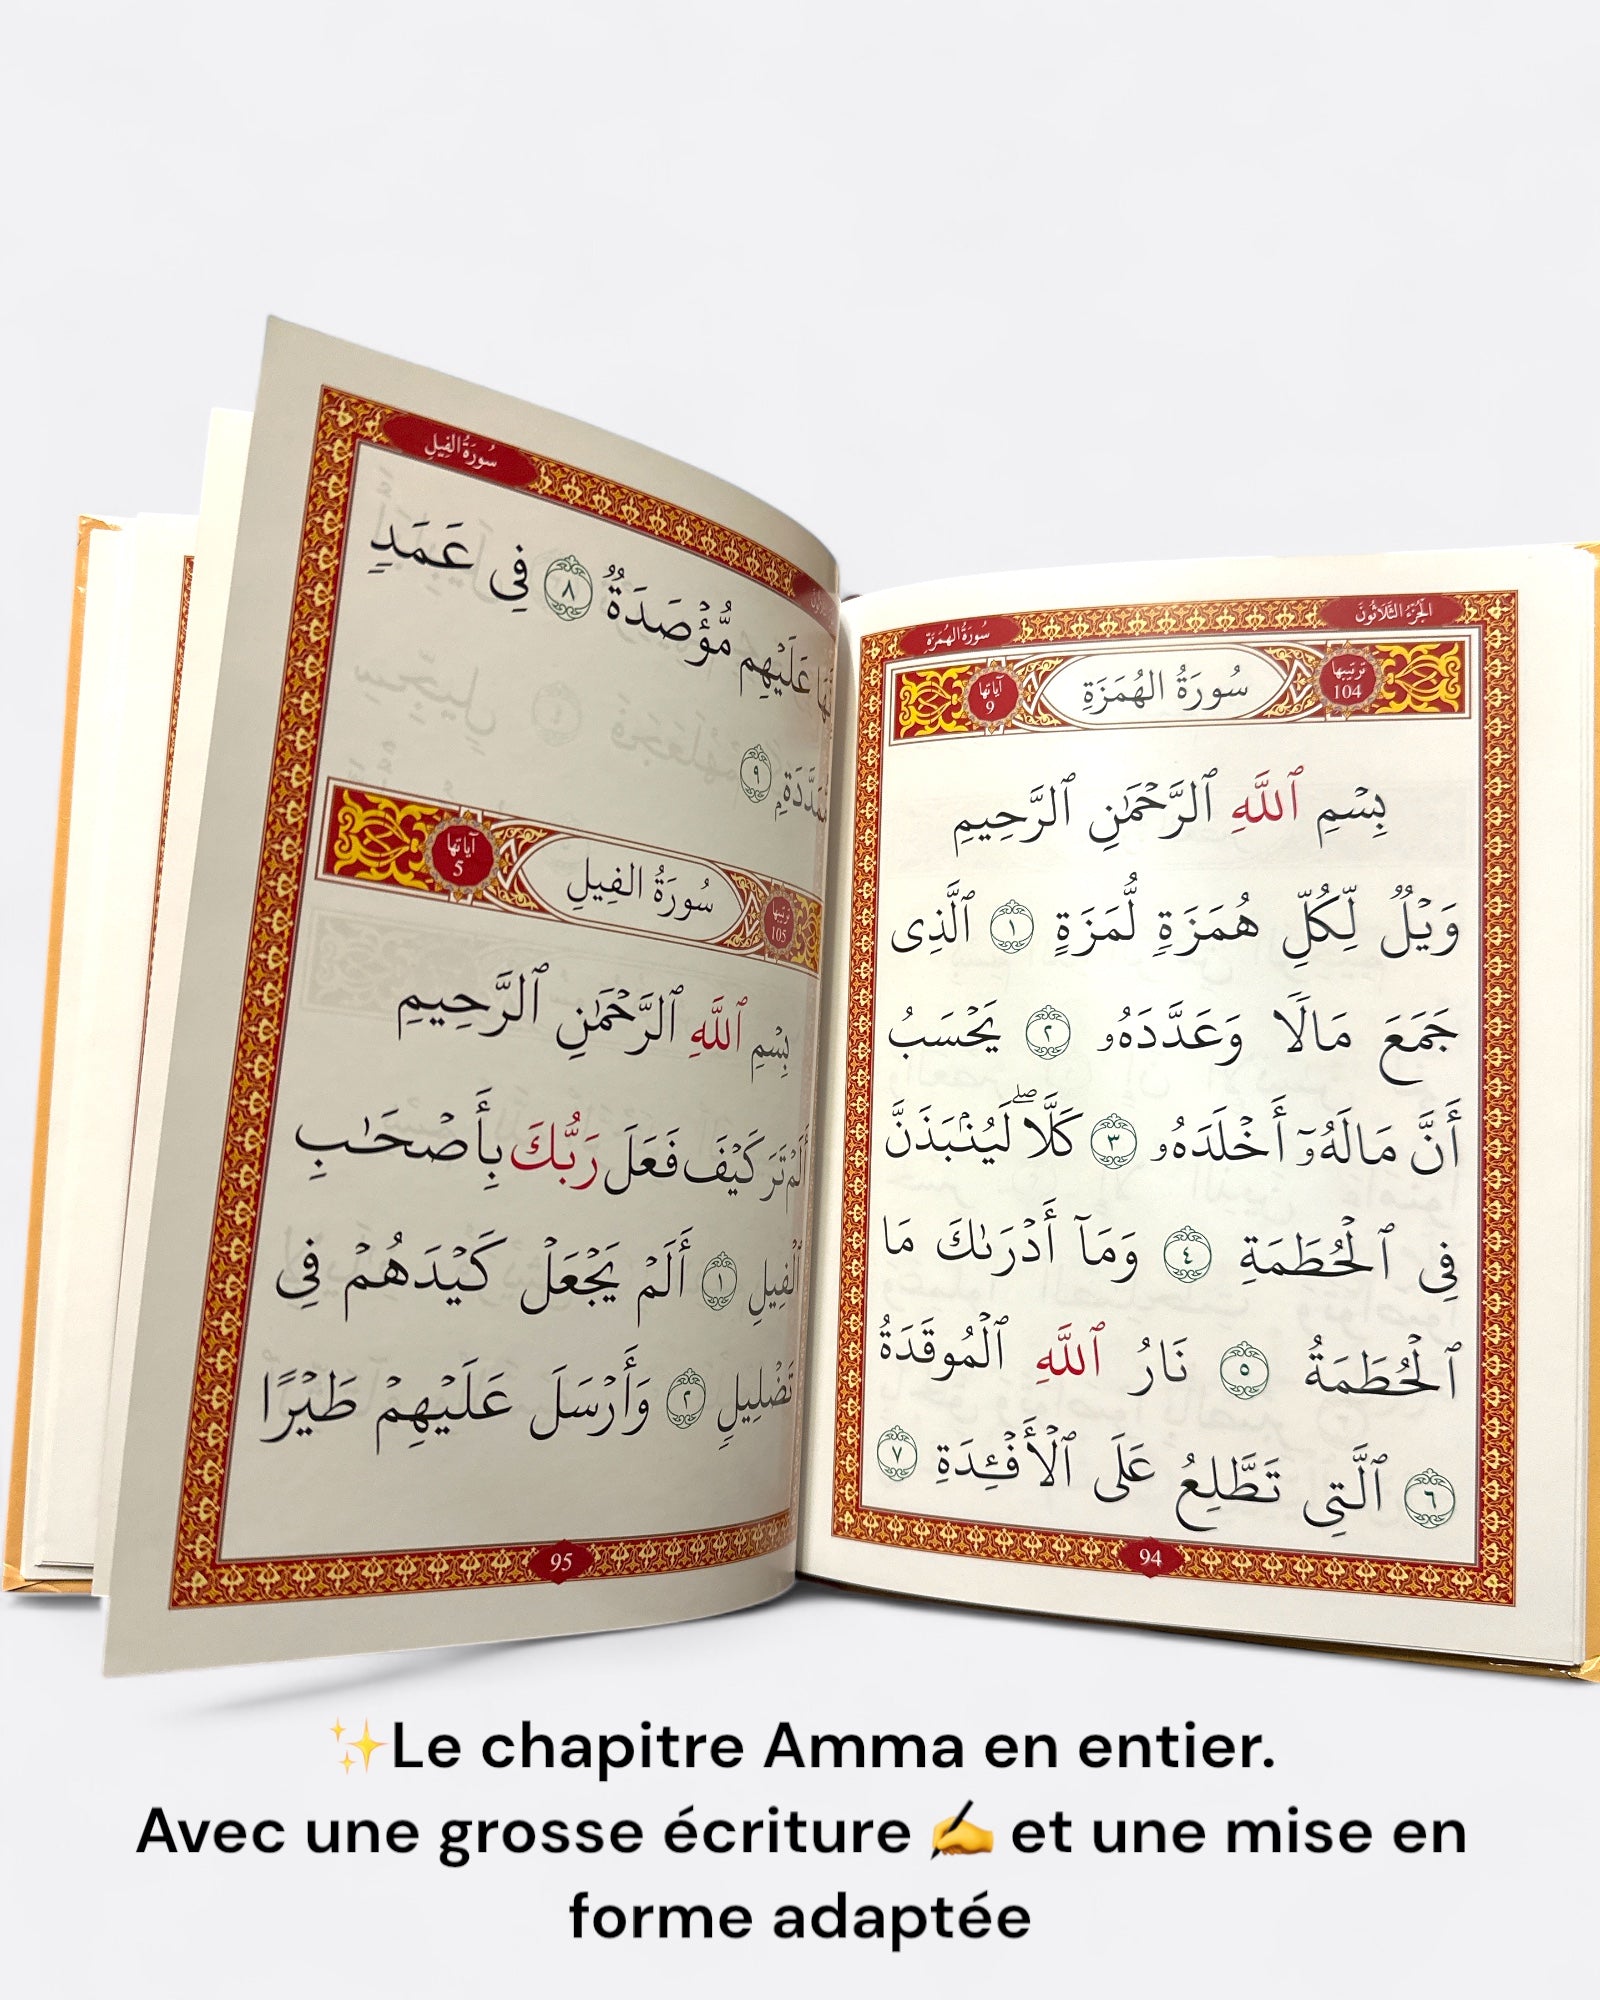 الجُزءُ الثَّلَاثُونَ
سُورَةُ الهُمَزَةِ
ترتيبها 104
سُورَةُ الهُمَزَةِ
آياتها 9
بِسۡمِ ٱللَّهِ ٱلرَّحۡمَٰنِ ٱلرَّحِيمِ
وَيۡلٞ لِّكُلِّ هُمَزَةٖ لُّمَزَةٍ ١ ٱلَّذِي
جَمَعَ مَالٗا وَعَدَّدَهُۥ ٢ يَحۡسَبُ
أَنَّ مَالَهُۥٓ أَخۡلَدَهُۥ ٣ كَلَّاۖ لَيُنۢبَذَنَّ
فِي ٱلۡحُطَمَةِ ٤ وَمَآ أَدۡرَىٰكَ مَا
ٱلۡحُطَمَةُ ٥ نَارُ ٱللَّهِ ٱلۡمُوقَدَةُ
٦ ٱلَّتِي تَطَّلِعُ عَلَى ٱلۡأَفۡـِٔدَةِ ٧
94
سُورَةُ الفِيلِ
عَلَيۡهِم مُّؤۡصَدَةٞ ٨ فِي عَمَدٖ
مُّمَدَّدَةِۭ ٩
ترتيبها 105
سُورَةُ الفِيلِ
آياتها 5
بِسۡمِ ٱللَّهِ ٱلرَّحۡمَٰنِ ٱلرَّحِيمِ
أَلَمۡ تَرَ كَيۡفَ فَعَلَ رَبُّكَ بِأَصۡحَٰبِ
ٱلۡفِيلِ ١ أَلَمۡ يَجۡعَلۡ كَيۡدَهُمۡ فِي
تَضۡلِيلٖ ٢ وَأَرۡسَلَ عَلَيۡهِمۡ طَيۡرًا
95
✨Le chapitre Amma en entier.
Avec une grosse écriture ✍️ et une mise en
forme adaptée